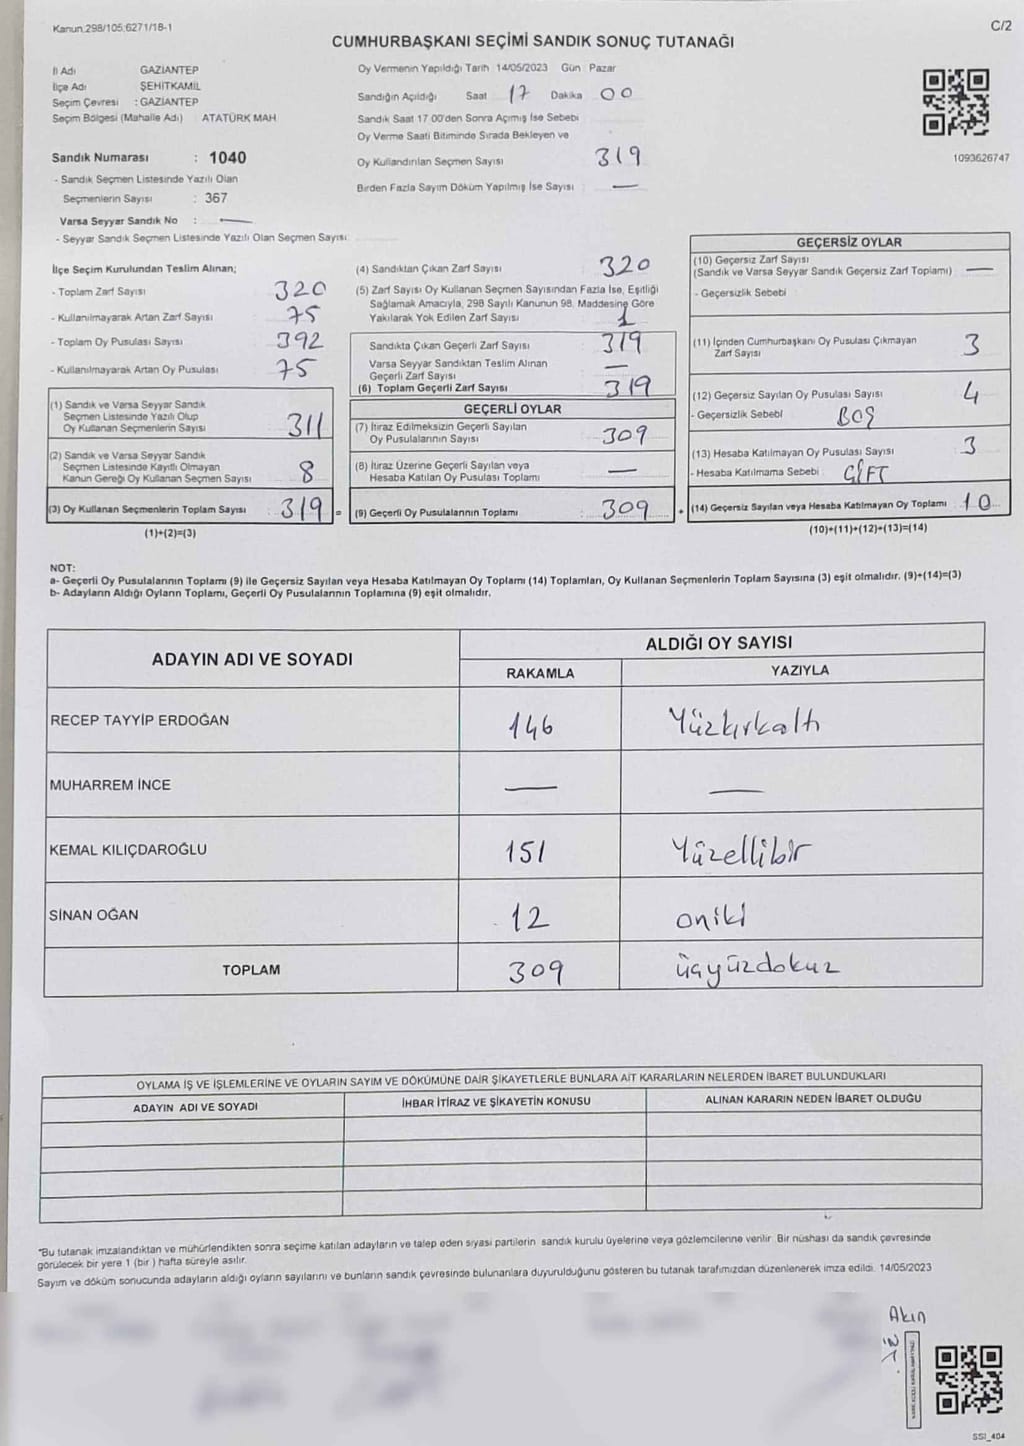 Kanun:298/105;6271/18-1
C/2
CUMHURBAŞKANI SEÇİMİ SANDIK SONUÇ TUTANAĞI
İl Adı GAZİANTEP
İlçe Adı ŞEHİTKAMİL
Seçim Çevresi : GAZİANTEP
Seçim Bölgesi (Mahalle Adı) ATATÜRK MAH.
Sandık Numarası : 1040
- Sandık Seçmen Listesinde Yazılı Olan
Seçmenlerin Sayısı : 367
Varsa Seyyar Sandık No : —
- Seyyar Sandık Seçmen Listesinde Yazılı Olan Seçmen Sayısı:
Oy Vermenin Yapıldığı Tarih 14/05/2023 Gün : Pazar
Sandığın Açıldığı Saat 17 Dakika 00
Sandık Saat 17.00'den Sonra Açımış İse Sebebi
Oy Verme Saati Bitiminde Sırada Bekleyen ve
Oy Kullandırılan Seçmen Sayısı 319
Birden Fazla Sayım Döküm Yapılmış İse Sayısı : —
1093626747
İlçe Seçim Kurulundan Teslim Alınan;
- Toplam Zarf Sayısı 320
- Kullanılmayarak Artan Zarf Sayısı 75
- Toplam Oy Pusulası Sayısı 392
- Kullanılmayarak Artan Oy Pusulası 75
(1) Sandık ve Varsa Seyyar Sandık
Seçmen Listesinde Yazılı Olup
Oy Kullanan Seçmenlerin Sayısı 311
(2) Sandık ve Varsa Seyyar Sandık
Seçmen Listesinde Kayıtlı Olmayan
Kanun Gereği Oy Kullanan Seçmen Sayısı 8
(3) Oy Kullanan Seçmenlerin Toplam Sayısı : 319 =
(1)+(2)=(3)
(4) Sandıktan Çıkan Zarf Sayısı 320
(5) Zarf Sayısı Oy Kullanan Seçmen Sayısından Fazla İse, Eşitliği
Sağlamak Amacıyla, 298 Sayılı Kanunun 98. Maddesine Göre
Yakılarak Yok Edilen Zarf Sayısı 1
Sandıkta Çıkan Geçerli Zarf Sayısı 319
Varsa Seyyar Sandıktan Teslim Alınan
Geçerli Zarf Sayısı —
(6) Toplam Geçerli Zarf Sayısı 319
GEÇERLİ OYLAR
(7) İtiraz Edilmeksizin Geçerli Sayılan
Oy Pusulalarının Sayısı 309
(8) İtiraz Üzerine Geçerli Sayılan veya
Hesaba Katılan Oy Pusulası Toplamı —
(9) Geçerli Oy Pusulalarının Toplamı : 309 +
GEÇERSİZ OYLAR
(10) Geçersiz Zarf Sayısı
(Sandık ve Varsa Seyyar Sandık Geçersiz Zarf Toplamı) —
- Geçersizlik Sebebi
(11) İçinden Cumhurbaşkanı Oy Pusulası Çıkmayan
Zarf Sayısı 3
(12) Geçersiz Sayılan Oy Pusulası Sayısı 4
- Geçersizlik Sebebi BOŞ
(13) Hesaba Katılmayan Oy Pusulası Sayısı 3
- Hesaba Katılmama Sebebi ÇİFT
(14) Geçersiz Sayılan veya Hesaba Katılmayan Oy Toplamı 10
(10)+(11)+(12)+(13)=(14)
NOT:
a- Geçerli Oy Pusulalarının Toplamı (9) ile Geçersiz Sayılan veya Hesaba Katılmayan Oy Toplamı (14) Toplamları, Oy Kullanan Seçmenlerin Toplam Sayısına (3) eşit olmalıdır. (9)+(14)=(3)
b- Adayların Aldığı Oyların Toplamı, Geçerli Oy Pusulalarının Toplamına (9) eşit olmalıdır.
ADAYIN ADI VE SOYADI ALDIĞI OY SAYISI
RAKAMLA YAZIYLA
RECEP TAYYİP ERDOĞAN 146 Yüzkırkaltı
MUHARREM İNCE — —
KEMAL KILIÇDAROĞLU 151 Yüzellibir
SİNAN OĞAN 12 oniki
TOPLAM 309 üçyüzdokuz
OYLAMA İŞ VE İŞLEMLERİNE VE OYLARIN SAYIM VE DÖKÜMÜNE DAİR ŞİKAYETLERLE BUNLARA AİT KARARLARIN NELERDEN İBARET BULUNDUKLARI
ADAYIN ADI VE SOYADI İHBAR İTİRAZ VE ŞİKAYETİN KONUSU ALINAN KARARIN NEDEN İBARET OLDUĞU
"Bu tutanak imzalandıktan ve mühürlendikten sonra seçime katılan adayların ve talep eden siyasi partilerin sandık kurulu üyelerine veya gözlemcilerine verilir. Bir nüshası da sandık çevresinde
görülecek bir yere 1 (bir ) hafta süreyle asılır.
Sayım ve döküm sonucunda adayların aldığı oyların sayılarını ve bunların sandık çevresinde bulunanlara duyurulduğunu gösteren bu tutanak tarafımızdan düzenlenerek imza edildi. 14/05/2023
Akın
SSI_404